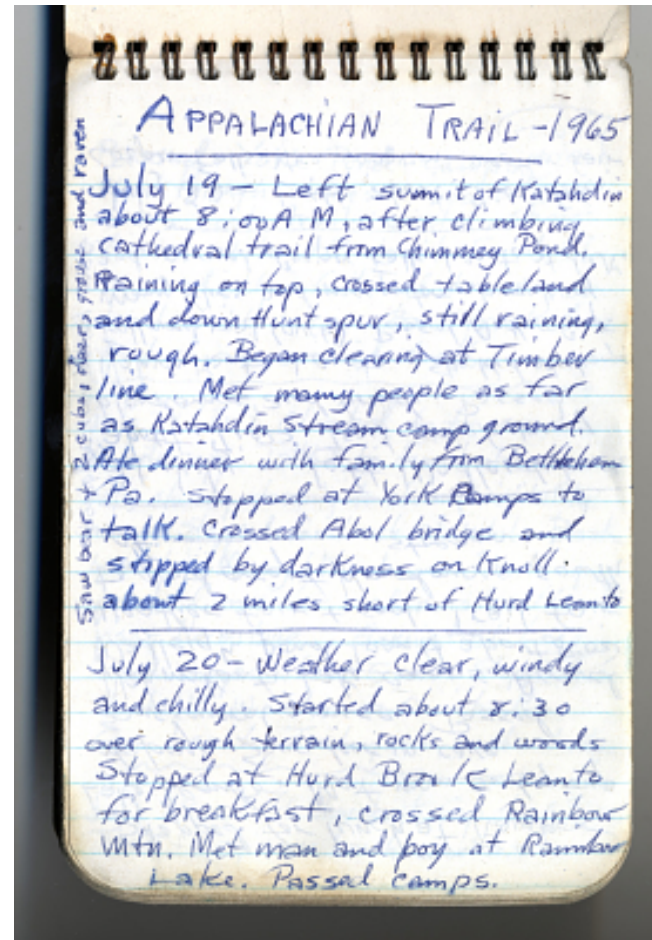 APPALACHIAN TRAIL - 1965
July 19 - Left summit of Katahdin
about 8:00 A M, after climbing
cathedral trail from Chimmey Pond.
Raining on top, crossed tableland
and down Hunt spur, still raining,
rough. Began clearing at Timber
line. Met many people as far
as Katahdin Stream camp ground.
Ate dinner with family from Bethlehem
Pa. stopped at York Camps to
talk. Crossed Abol bridge and
stopped by darkness on Knoll.
about 2 miles short of Hurd Leanto
Saw bear + 2 cubs, deer, grouse and raven
July 20 - Weather clear, windy
and chilly. Started about 8:30
over rough terrain, rocks and woods
Stopped at Hurd Brook Leanto
for breakfast, crossed Rainbow
Mtn. Met man and boy at Rainbow
Lake. Passed camps.